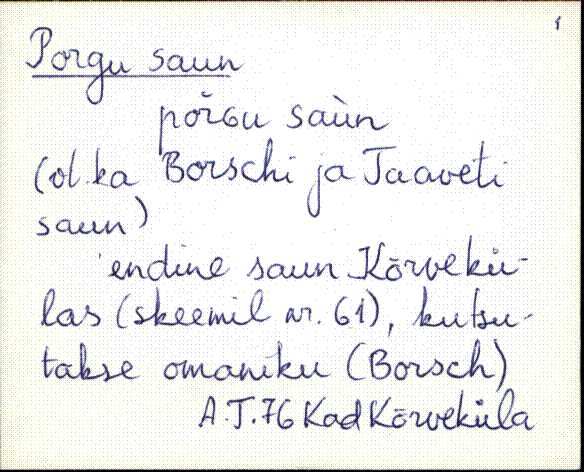 1
Porgu saun
põrGu saùn
(ol. ka Borschi ja Taaveti
saun)
endine saun Kõrvekü-
las (skeemil nr. 61), kutsu-
takse omaniku (Borsch)
A.T.76 Kad Kõrveküla